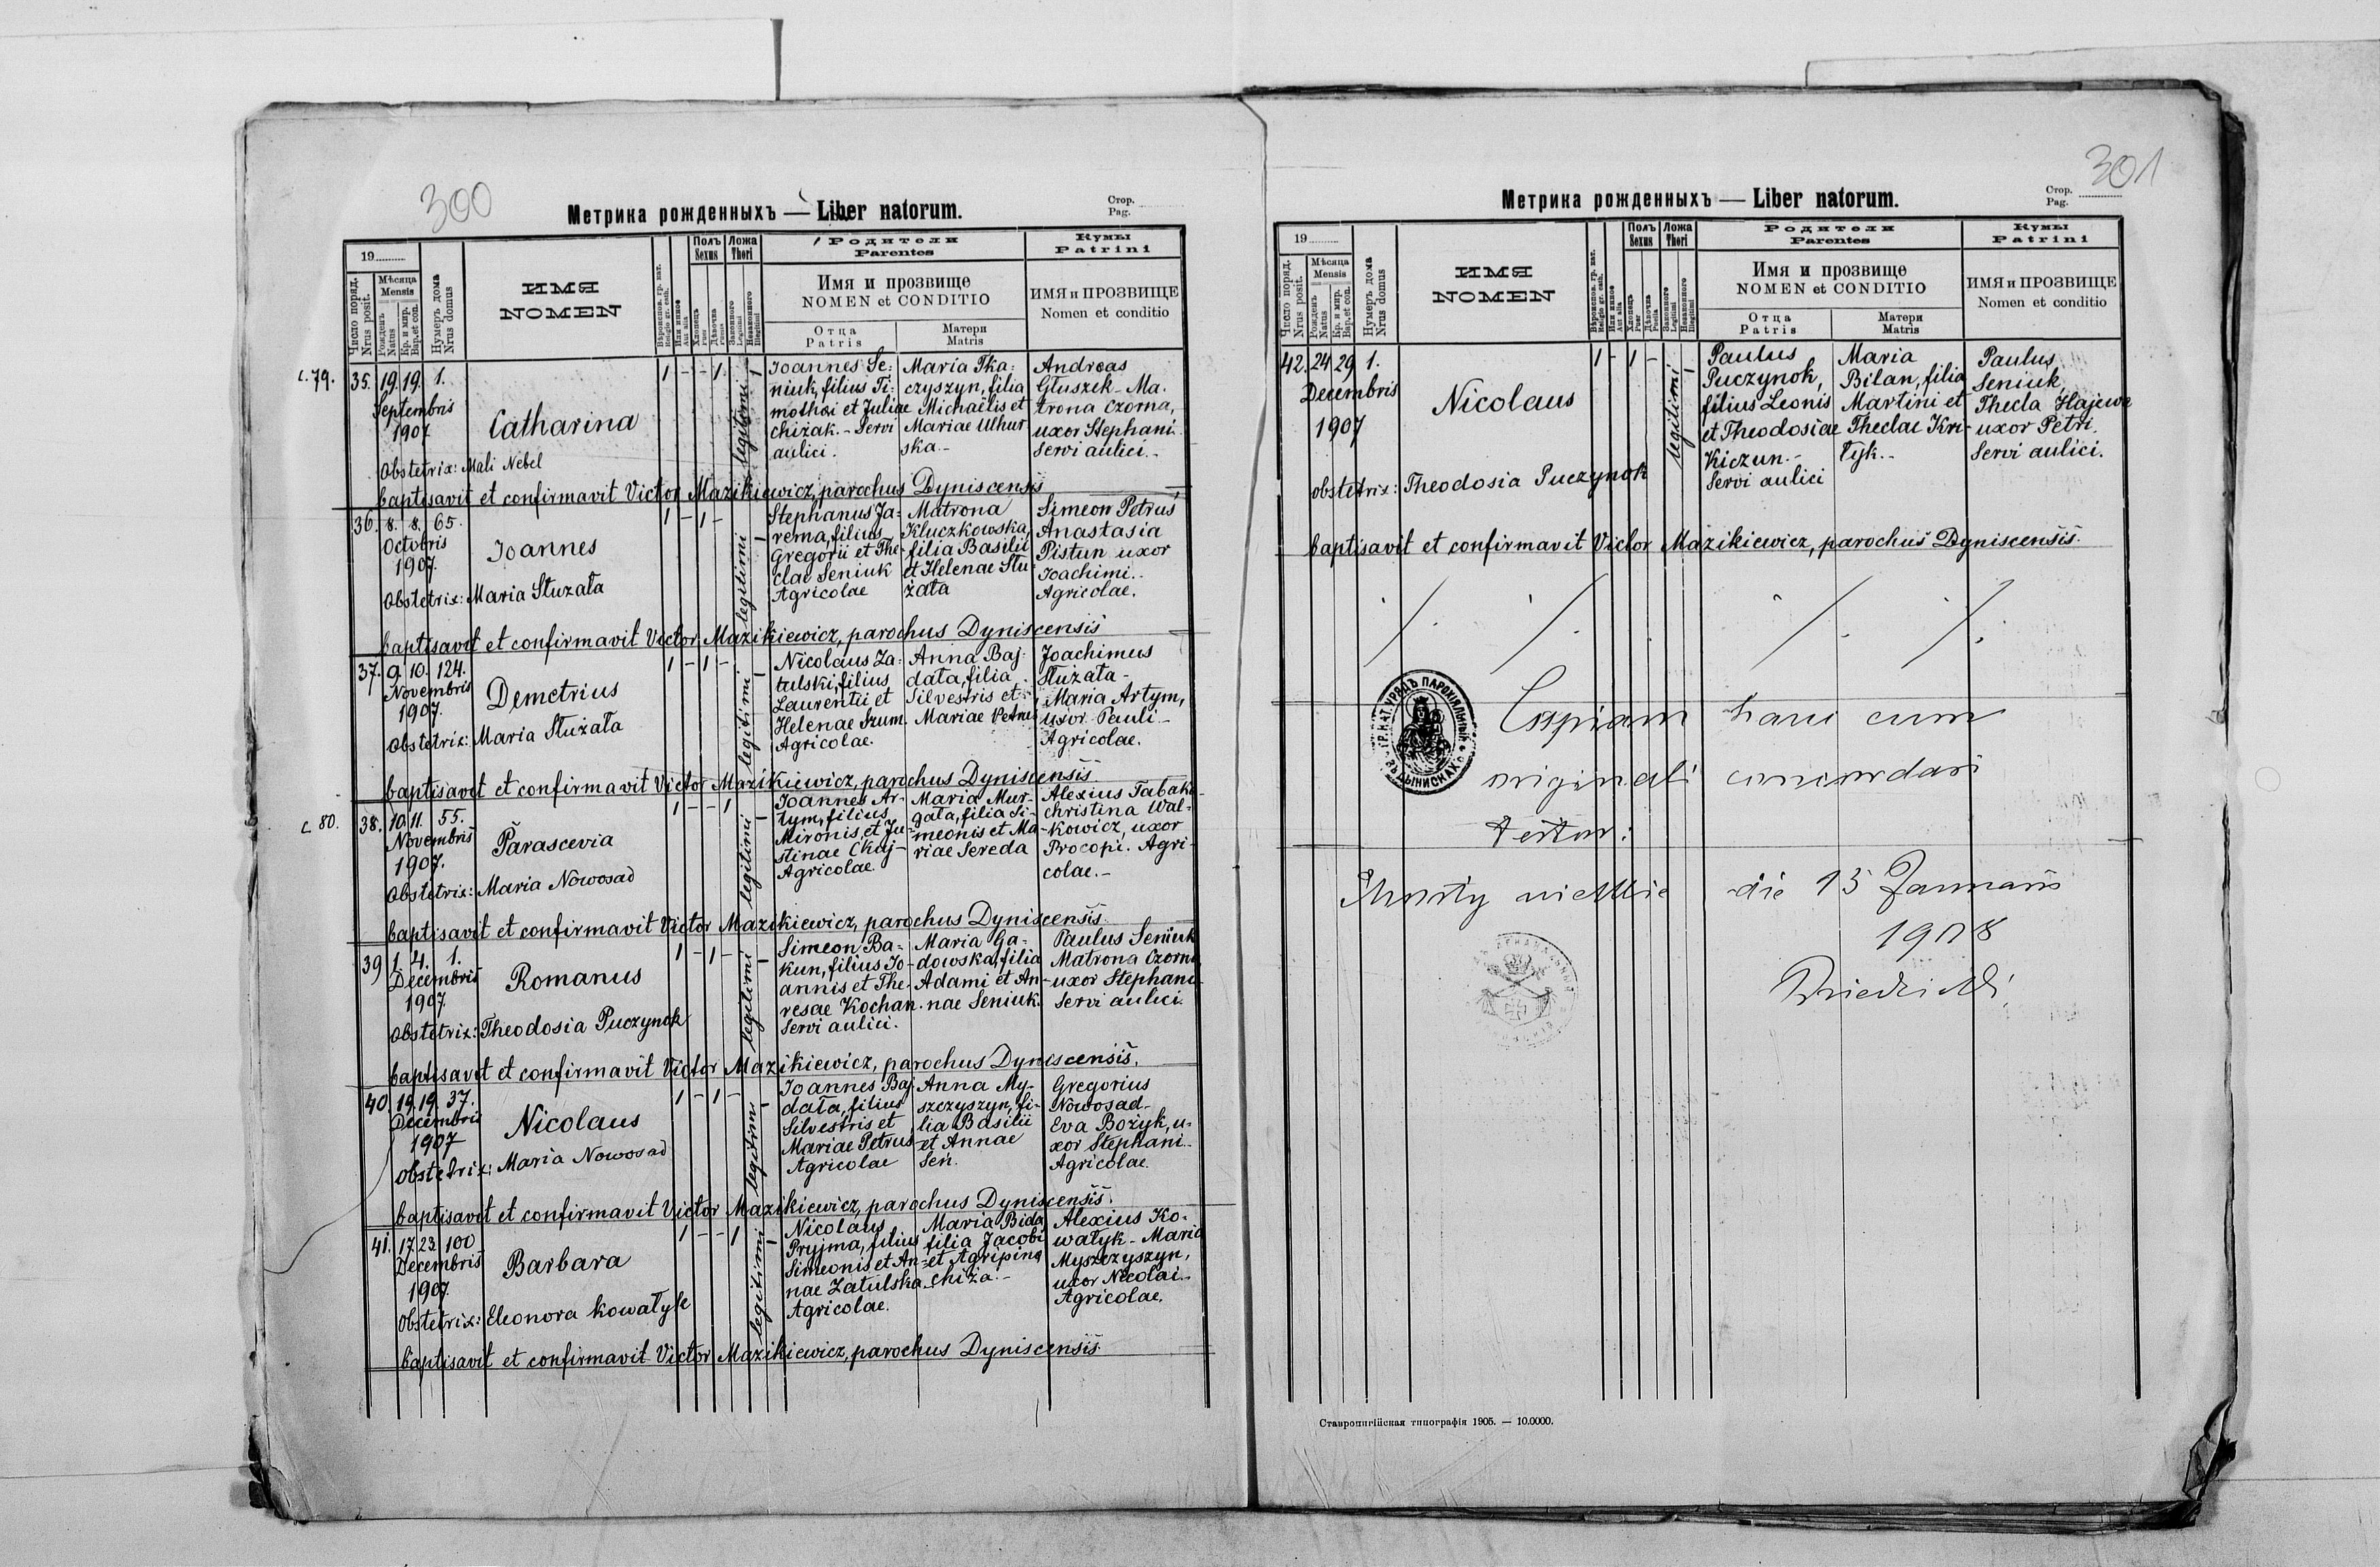 300
Метрика рожденныхъ — Liber natorum.
Стор.
Pag.
19
Число поряд.
Nrus posit.
Мѣсяца
Mensis
Рожденъ
Natus
Кр. и мир.
Bap. et con.
Нумеръ дома
Nrus domus
ИМЯ
NOMEN
Вѣроиспов. гр. кат.
Religio gr. cath.
Или инное
Aut alia
Полъ
Sexus
Хлопець
Puer
Дѣвочка
Puella
Ложа
Thori
Законного
Legitimi
Незаконного
Illegitimi
Родители
Parentes
Имя и прозвище
NOMEN et CONDITIO
Отца
Patris
Матери
Matris
Кумы
Patrini
ИМЯ и ПРОЗВИЩЕ
Nomen et conditio
c. 79.
35. 19. 19. 1.
Septembris
1907
Catharina
1 - - 1
legitimi
Joannes Se-
niuk, filius Ti-
mothei et Juliae
Chiżak. - Servi
aulici.
Maria Tka-
czyszyn, filia
Michaëlis et
Mariae Uhur
ska. -
Andreas
Głuszek - Ma-
trona Czorna,
uxor Stephani
Servi aulici. -
Obstetrix: Mali Nebel
baptisavit et confirmavit Victor Mazikiewicz, parochus Dyniscensis
36. 8. 8. 65.
Octobris
1907.
Joannes
1 - 1 -
legitimi
Stephanus Ja-
rema, filius
Gregorii et The-
clae Seniuk
Agricolae
Matrona
Kluczkowska,
filia Basilii
et Helenae Słu
żata
Simeon Petrus
Anastasia
Pistun uxor
Joachimi..
Agricolae.
Obstetrix: Maria Słuzata
baptisavit et confirmavit Victor Mazikiewicz, parochus Dyniscensis
37. 9. 10. 124.
Novembris
1907.
Demetrius
1 - 1 -
legitimi
Nicolaus Za-
tulski, filius
Laurentii et
Helenae Szum.
Agricolae.
Anna Baj-
data, filia
Silvestris et
Mariae Petrus
Joachimus
Służata -
Maria Artym,
uxor Pauli -
Agricolae.
Obstetrix: Maria Służata
baptisavit et confirmavit Victor Mazikiewicz, parochus Dyniscensis
c. 80.
38. 10. 11. 55.
Novembris
1907.
Parascevia
1 - - 1
legitimi
Joannes Ar-
tym, filius
Mironis et Ju-
stinae Ckaj-
Agricolae.
Maria Mur-
gala, filia Si-
meonis et Ma-
riae Sereda
Alexius Tabaka -
Christina Wal-
kowicz, uxor
Procopi. Agri-
colae. -
Obstetrix: Maria Nowosad
baptisavit et confirmavit Victor Mazikiewicz, parochus Dyniscensis.
39 1. 4. 1.
Decembris
1907.
Romanus
1 - 1 -
legitimi
Simeon Ba-
kun, filius Jo-
annis et The-
resae Kochan.
Servi aulici.
Maria Ga-
dowska, filia
Adami et An-
nae Seniuk.
Paulus Seniuk
Matrona Czorna
uxor Stephani -
Servi aulici.
Obstetrix: Theodosia Puczynok
baptisavit et confirmavit Victor Mazikiewicz, parochus Dyniscensis.
40. 19. 19. 37.
Decembris
1907
Nicolaus
1 - 1 -
legitimi
Joannes Baj-
data, filius
Silvestris et
Mariae Petrus
Agricolae
Anna My-
szczyszyn, fi-
lia Basilii
et Annae
Sen.
Gregorius
Nowosad -
Eva Bożyk, u-
xor Stephani -
Agricolae.
Obstetrix: Maria Nowosad
baptisavit et confirmavit Victor Mazikiewicz, parochus Dyniscensis.
41. 17. 23. 100
Decembris
1907.
Barbara
1 - - 1
legitimi
Nicolaus
Pryjma, filius
Simeonis et An-
nae Zatulska
Agricolae.
Maria Bida,
filia Jacobi
et Agripina
Chiża. -
Alexius Ko-
wałyk - Maria
Myszczyszyn,
uxor Nicolai -
Agricolae.
Obstetrix: Eleonora Kowałyk
baptisavit et confirmavit Victor Mazikiewicz, parochus Dyniscensis
301
Метрика рожденныхъ — Liber natorum.
Стор.
Pag.
19
Число поряд.
Nrus posit.
Мѣсяца
Mensis
Рожденъ
Natus
Кр. и мир.
Bap. et con.
Нумеръ дома
Nrus domus
ИМЯ
NOMEN
Вѣроиспов. гр. кат.
Religio gr. cath.
Или инное
Aut alia
Полъ
Sexus
Хлопець
Puer
Дѣвочка
Puella
Ложа
Thori
Законного
Legitimi
Незаконного
Illegitimi
Родители
Parentes
Имя и прозвище
NOMEN et CONDITIO
Отца
Patris
Матери
Matris
Кумы
Patrini
ИМЯ и ПРОЗВИЩЕ
Nomen et conditio
42. 24 29 1.
Decembris
1907
Nicolaus
1 - 1 -
legitimi
Paulus
Puczynok,
filius Leonis
et Theodosiae
Kiczun. -
Servi aulici
Maria
Bilan, filia
Martini et
Theclae Kri-
tyk. -
Paulus
Seniuk,
Thecla Hajewa
uxor Petri.
Servi aulici.
obstetrix: Theodosia Puczynok
baptisavit et confirmavit Victor Mazikiewicz, parochus Dyniscensis.
ГР. КАТ. УРЯДЪ ПАРОХІАЛЬНЫЙ ВЪ ДЫНИСКАХЪ
Copiam hanc cum
originali concordari
testor:
die 15 Januarii
1908
Ставропигійская типографія 1905. — 10.0000.